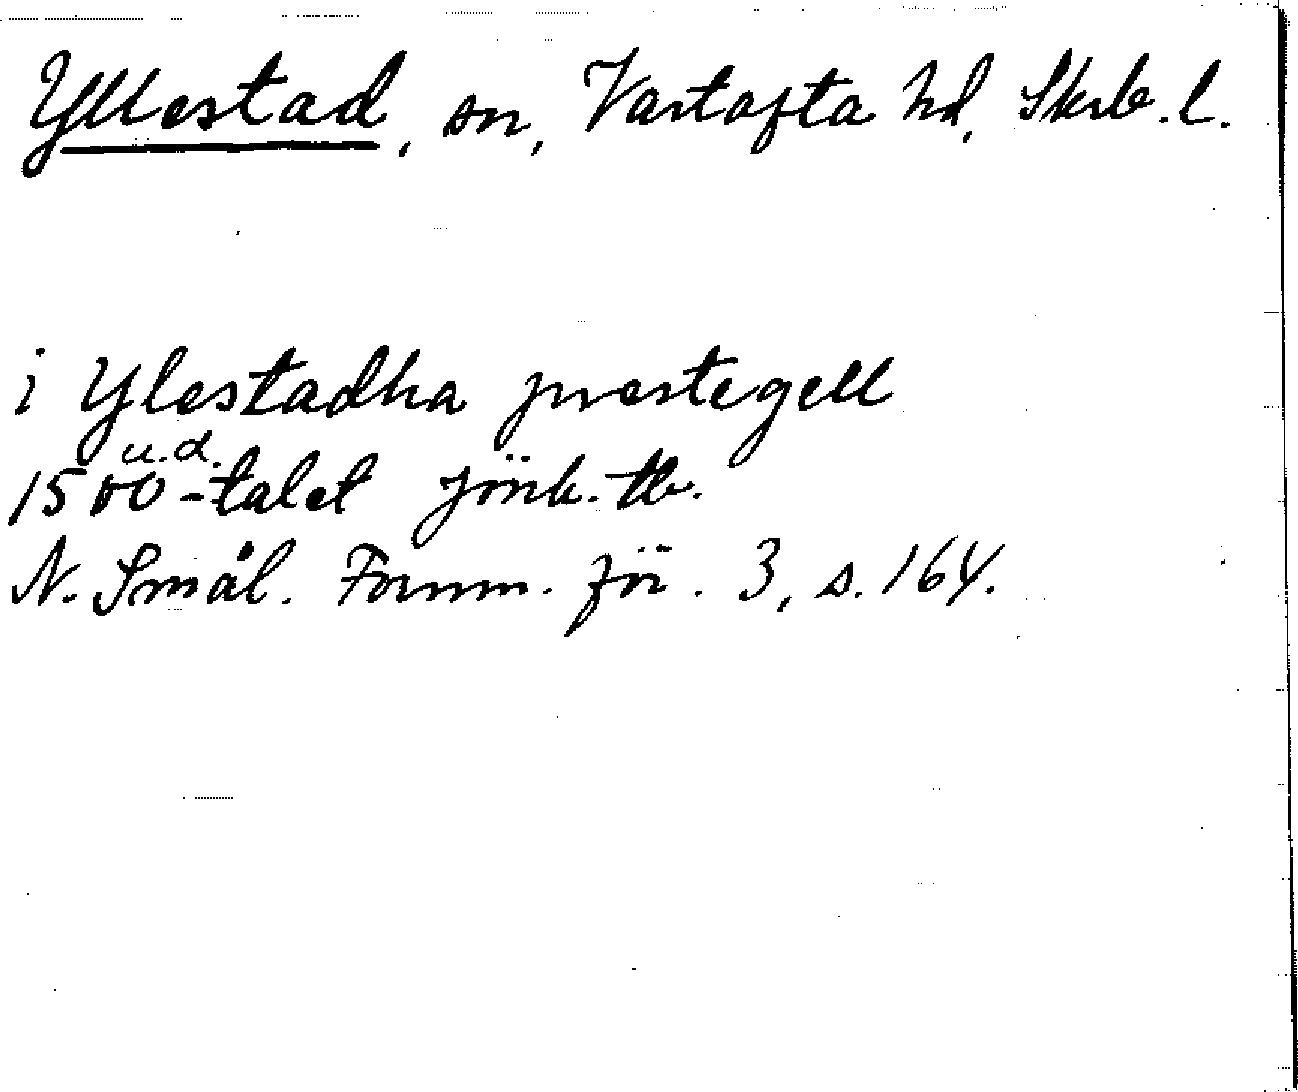 Yllestad, sn, Vartofta hd, Skrb. l.
i Ylestadha prestegell
u.d.
1500-talet Jönk. tb.
N. Smål. Fornm. för. 3, s. 164.